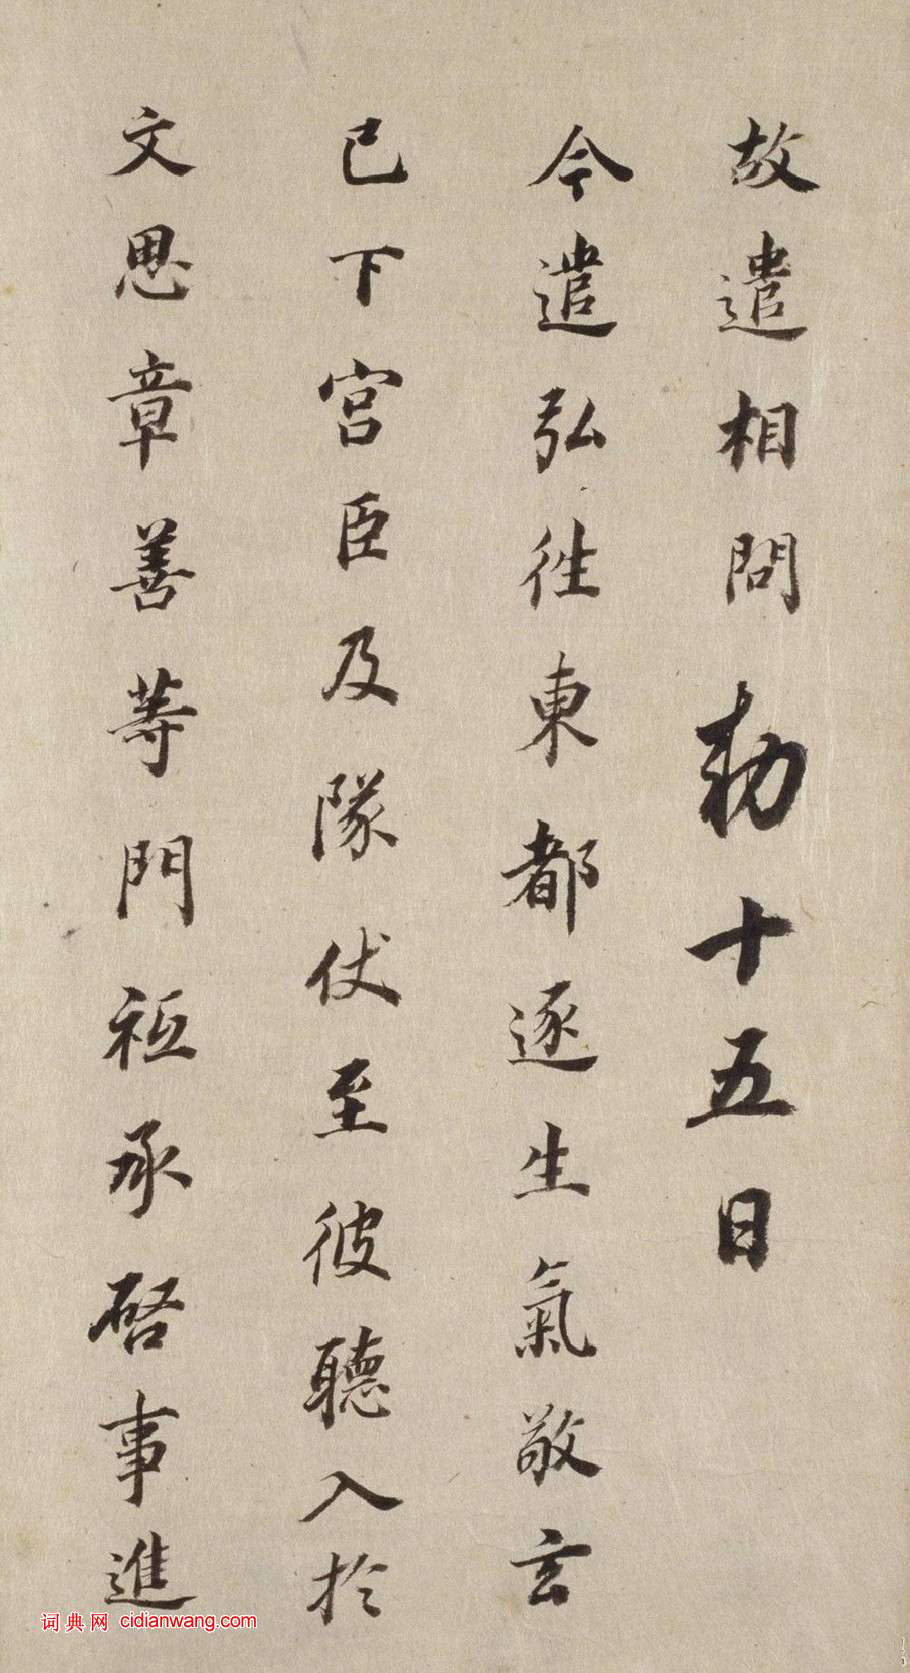 故遣相問敕十五日
今遣弘往東都逐生氣敬玄
已下宮臣及隊仗至彼聽入於
文思章善等門祗承啓事進
词典网 cidianwang.com